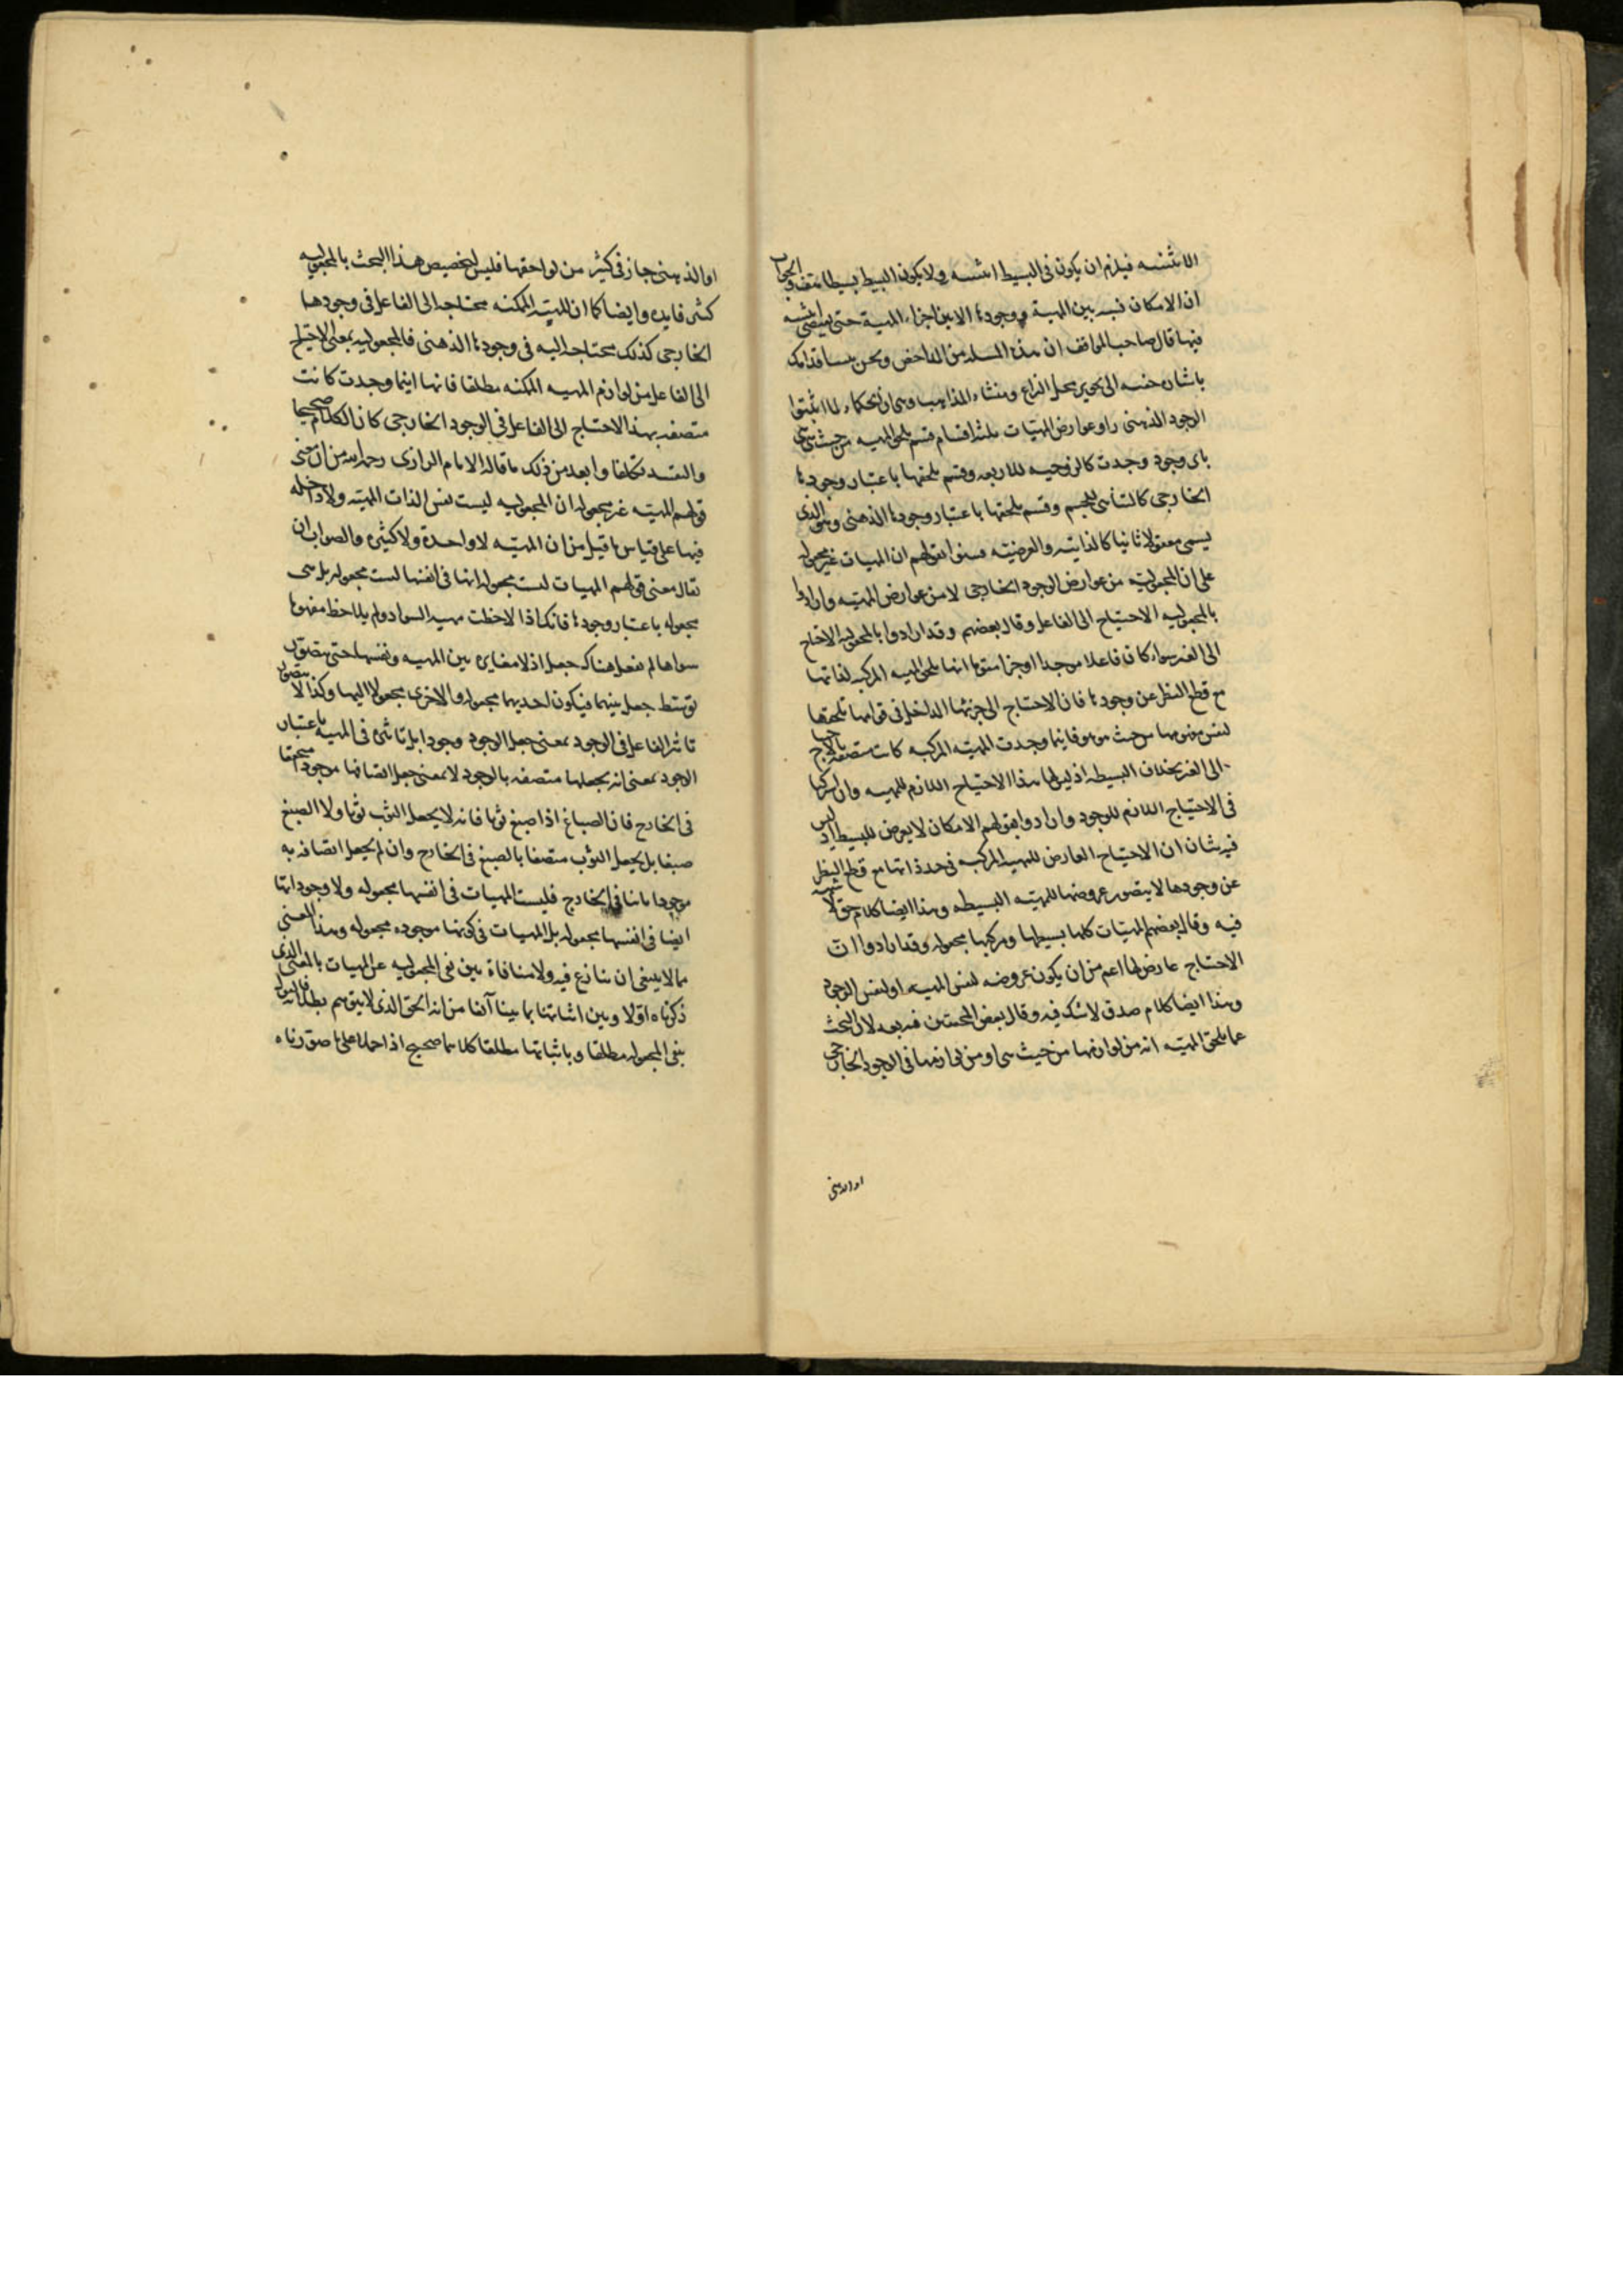 الاثنينيه فيلزم ان يكون في البسيط اثنينيه ولا يكون البسيط بسيطا هف والجواب
ان الامكان نسبه بين المهية ووجودها لا بين اجزاء المهية حتى يقتضى اثنينيه
فيها قال صاحب المواقف ان هذه المسله من المداحض ونحن
باشارة خفيه الى تحرير محل النزاع ومنشاء المذاهب وهى ان الحكماء لما اثبتوا
الوجود الذهنى راوا عوارض المهيات ثلثه اقسام قسم يلحق المهيه من حيث هى هى
باى وجود وجدت كالزوجيه للاربعه وقسم يلحقها باعتبار وجودها
الخارجى كالتناهى للجسم وقسم يلحقها باعتبار وجودها الذهنى وهو الذى
يسمى معقولا ثانيا كالذاتيه والعرضيه فنبهوا بقولهم ان المهيات غير مجعوله
على ان المجعوليه من عوارض الوجود الخارجى لا من عوارض المهيه وارادوا
بالمجعوليه الاحتياج الى الفاعل وقال بعضهم وقد ارادوا بالمجعوليه الاحتياج
الى الغير سواء كان فاعلا موجدا او جزءا مقوما انها تلحق المهيه المركبه لذاتها
مع قطع النظر عن وجودها فان الاحتياج الى جزئها الداخل فى قوامها يلحقها
لنفس مفهومها من حيث هو هو فاينما وجدت المهيه المركبه كانت متصفه بالاحتياج
الى الغير بخلاف البسيطه اذ ليس لها هذا الاحتياج اللازم للمهيه وان اشتركا
فى الاحتياج اللازم للوجود وارادوا بقولهم الامكان لا يعرض للبسيط اذ ليس
فيه شيئان ان الاحتياج العارض للمهيه المركبه فى حد ذاتها مع قطع النظر
عن وجودها لا يتصور عروضها للمهيه البسيطه وهذا ايضا كلام حق لا شبهه
فيه وقال بعضهم المهيات كلها بسيطها ومركبها مجعوله وقد ارادوا ان
الاحتياج عارض لها اعم من ان يكون عروضه لنفس المهيه او لنفس الوجود
وهذا ايضا كلام صدق لا شك فيه وقال بعض المحققين فيه بعد لان البحث
عما يلحق المهيه انه من لوازمها من حيث هى او من لوازمها فى الوجود الخارجى
او الذهنى
او الذهنى جاز فى كثير من لواحقها فليس لتخصيص هذا البحث بالمجعوليه
كثير فايده وايضا كما ان المهيه الممكنه محتاجه الى الفاعل فى وجودها
الخارجى كذلك محتاجه اليه فى وجودها الذهنى فالمجعوليه بمعنى الاحتياج
الى الفاعل من لوازم المهيه الممكنه مطلقا فانها اينما وجدت كانت
متصفه بهذا الاحتياج الى الفاعل فى الوجود الخارجى كان الكلام صحيحا
والتقييد تكلفا وابعد من ذلك ما قاله الامام الرازى رحمه الله من ان معنى
قولهم المهيه غير مجعوله ان المجعوليه ليست نفس الذات المهيه ولا داخله
فيها على قياس ما قيل من ان المهيه لا واحدة ولا كثيره والصواب ان
يقال معنى قولهم المهيات ليست مجعوله انها فى انفسها ليست مجعوله بل هى
مجعوله باعتبار وجودها فانك اذا لاحظت مهيه السواد ولم يلاحظ مفهوما
سواها لم تعقل هناك جعل اذ لا مغايره بين المهيه ونفسها حتى يتصور
توسط جعل بينهما فيكون احديهما مجعوله والاخرى مجعولا اليها وكذا لا يتصور
تاثير الفاعل فى الوجود بمعنى جعل الوجود وجودا بل تاثيره فى المهيه باعتبار
الوجود بمعنى انه يجعلها متصفه بالوجود لا بمعنى جعل اتصافها موجودا متحققا
فى الخارج فان الصباغ اذا صبغ ثوبا فانه لا يجعل الثوب ثوبا ولا الصبغ
صبغا بل يجعل الثوب متصفا بالصبغ فى الخارج وان لم يجعل اتصافه به
موجودا ثابتا فى الخارج فليست المهيات فى انفسها مجعوله ولا وجوداتها
ايضا فى انفسها مجعوله بل المهيات فى كونها موجوده مجعوله وهذا المعنى
مما لا ينبغى ان ينازع فيه ولا منافاة بين نفى المجعوليه عن المهيات بالمعنى الذى
ذكرناه اولا وبين اثباتها بما بينا آنفا من انه الحق الذى لا يتوهم بطلانه فالقول
بنفى المجعوليه مطلقا وباثباتها مطلقا كلاهما صحيح اذا حملا على ما صورناه